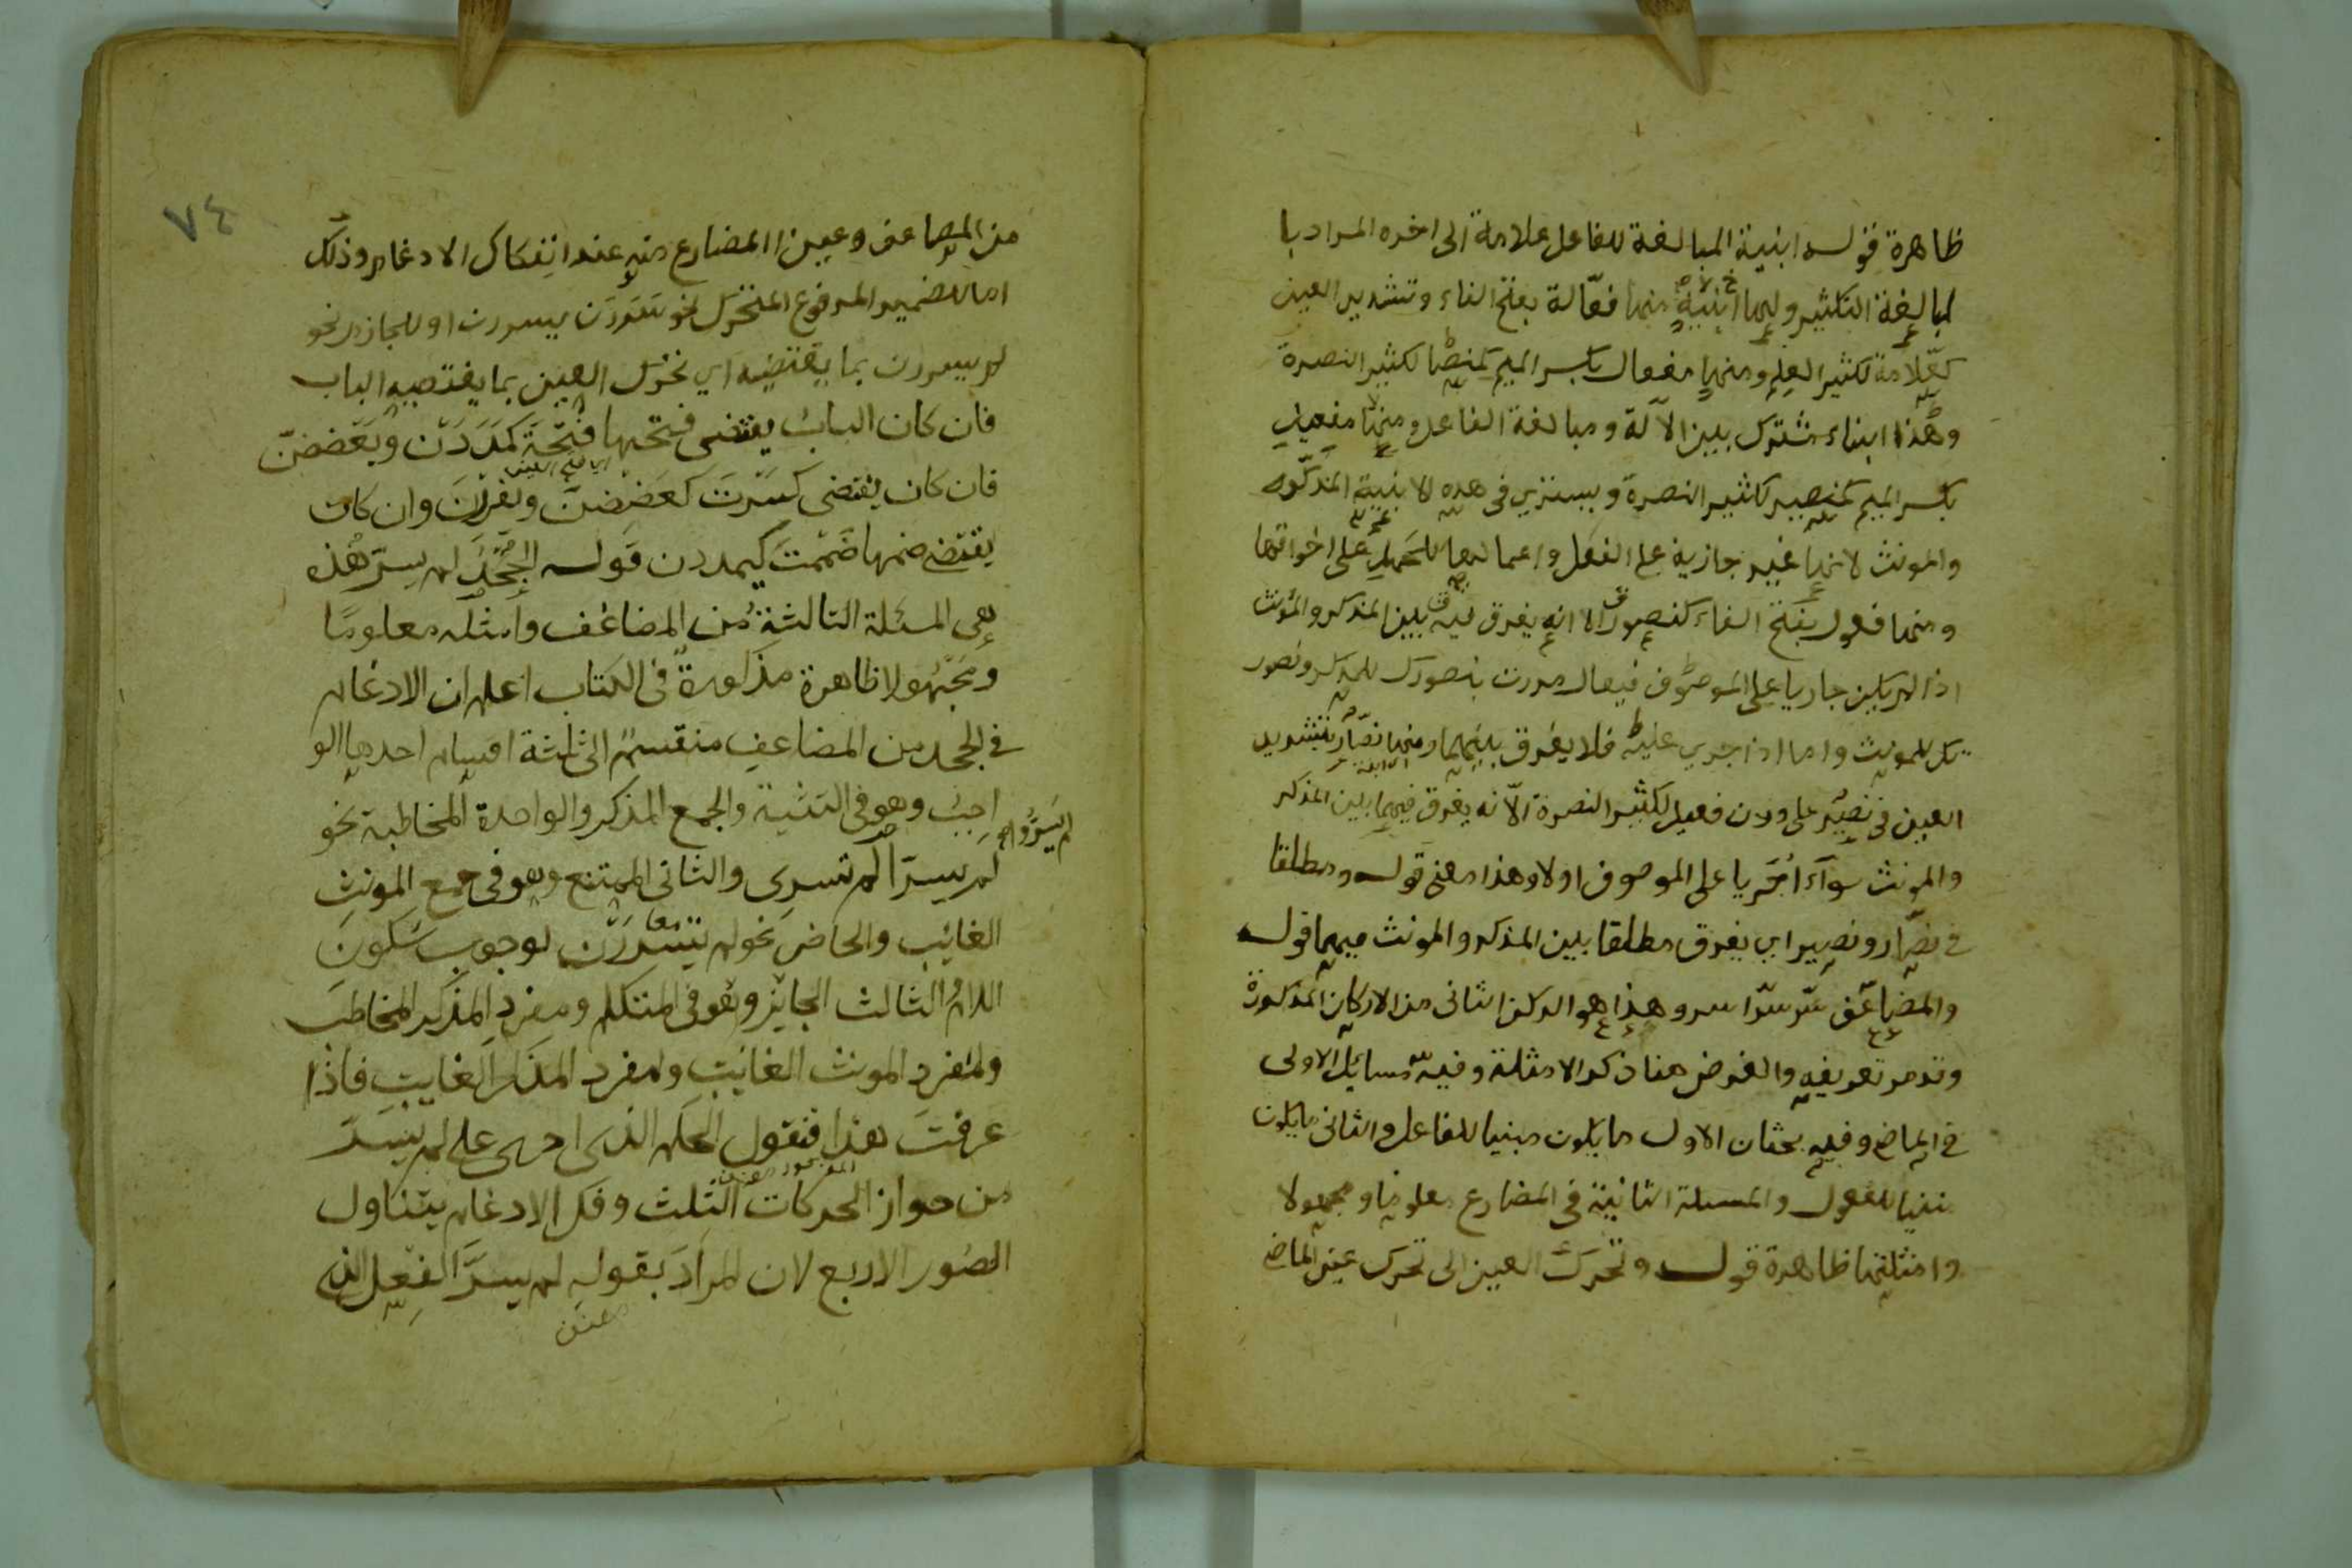 ظاهرة قوله ابنية المبالغة للفاعل علامة الى اخره المراد با
لمبالغة التكثير ولها ابنية منها فعّالة بفتح الفاء وتشديد العين
كعّلامة لكثير العلم ومنها مفعال بكسر الميم كمنصار لكثير النصرة
وهذا ابناء مشترك بين الآلة ومبالغة الفاعل ومنها مفعيل
بكسر الميم كمنصير لكثير النصرة ويستوي في هذه الابنية المذكر
والمونث لانها غير جارية على الفعل واعمالها للحمل على اخواتها
ومنها فعول بفتح الفاء كنصور الا انه يفرق فيه بين المذكر والمؤنث
اذا لم يكن جاريا على الموصوف فيقال مررت بنصورك للمذكر ونصور
تك للمونث واما اذا جرى عليه فلا يفرق بينهما ومنها نصّار بتشديد
العين في نصير على وزن فعيل لكثير النصرة الّا انه يفرق فيهما بين المذكر
والمونث سوآء اُجريا على الموصوف اولا وهذا معنى قوله ومطلقا
في نصّار ونصير اي يفرق مطلقا بين المذكر والمونث فيهما قوله
والمضاعف سّر سّرا سر وهذا هو الركن الثاني من الاركان المذكورة
وقد مر تعريفه والغرض هنا ذكر الامثلة وفيه مسايل الاولى
في الماضي وفيه بحثان الاول ما يكون مبنيا للفاعل والثاني ما يكون
مبنيا للمفعول والمسئلة الثانية في المضارع معلوما ومجهولا
وامثلتها ظاهرة قوله وتحرك العين الى تحرك عين الماضي
٧٤
من المضاعف وعين المضارع منه عند انفكاك الادغام وذلك
اما للضمير المرفوع المتحرك نحو سررن يسررن او للجازم نحو
لم يسررن بما يقتضيه اي تحرك العين بما يقتضيه الباب
فان كان الباب يقتضى فتحها فتحة كمددن ويعضضن
اي فتح العين
فان كان يقتضى كسرت كعضضن ويفررن وان كان
يقتضي ضمها ضممت كيمددن قوله الجحد لم يسرّ هذه
هي المسئلة الثالثة من المضاعف وامثله معلومًا
ومجهولا ظاهرة مذكورة في الكتاب اعلم ان الادغام
في الجحد من المضاعف منقسم الى ثلثة اقسام احدها الو
اجب وهو في التثنية والجمع المذكر والواحدة المخاطبة نحو
لم يسرّوا
لم يسرّا لم تسرى والثانى الممتنع وهو في جمع المونث
الغائب والحاضر نحو لم يسررن لوجوب سكون
اللام الثالث الجايز وهو في المتكلم ومفرد المذكر المخاطب
ولمفرد المونث الغائب ولمفرد المذكر الغايب فاذا
عرفت هذا فنقول الحكم الذى اجرى على لم يسرّ
من جواز الحركات الثلث وفك الادغام يتناول
الصور الاربع لان المراد بقوله لم يسرّ الفعل الذى